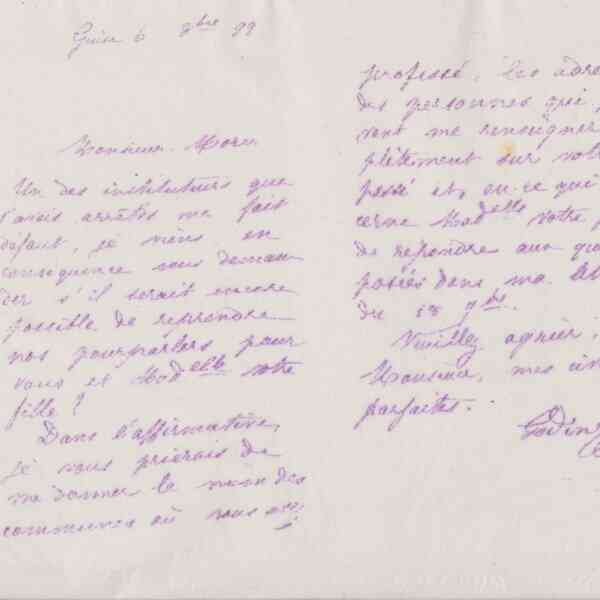 Guise 6 9bre 99
Monsieur
Un des instituteurs que
j'avais arrêtés me fait
défaut, je viens en
conséquence vous deman
der s'il serait encore
possible de reprendre
nos pourparlers pour
vous et Madelle votre
fille?
Dans l'affirmative,
je vous prierais de
me donner le nom des
communes où vous avez
professé, les adre
des personnes qui
vont me renseigner
plètement sur votr
passé et, en ce qui
cerne Madelle votre
de répondre aux qu
posées dans ma
du 18 7bre.
Veuillez agréer,
Monsieur, mes civ
parfaites.
Godin